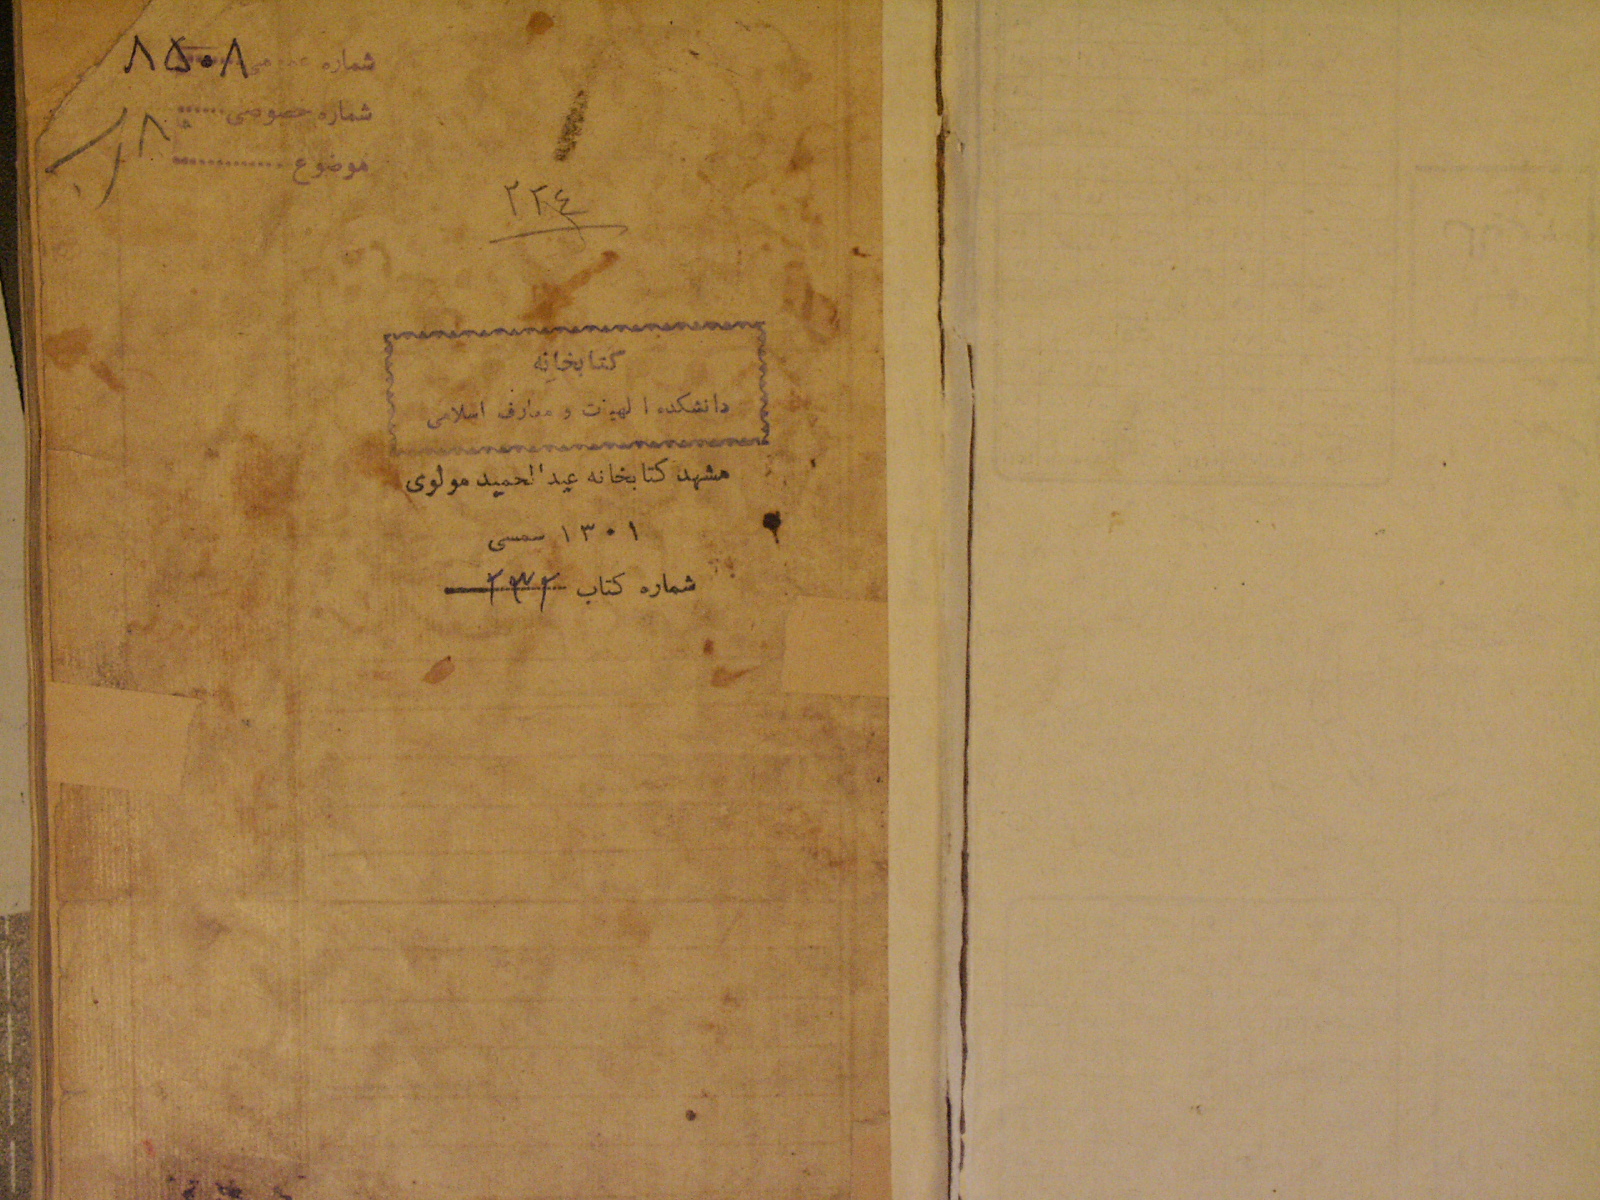 شماره عمومی ۸۵۰۸
شماره خصوصی
موضوع
۲۲٤
کتابخانه
دانشکده الهیات و معارف اسلامی
مشهد کتابخانه عبدالحمید مولوی
۱۳۰۱ شمسی
شماره کتاب